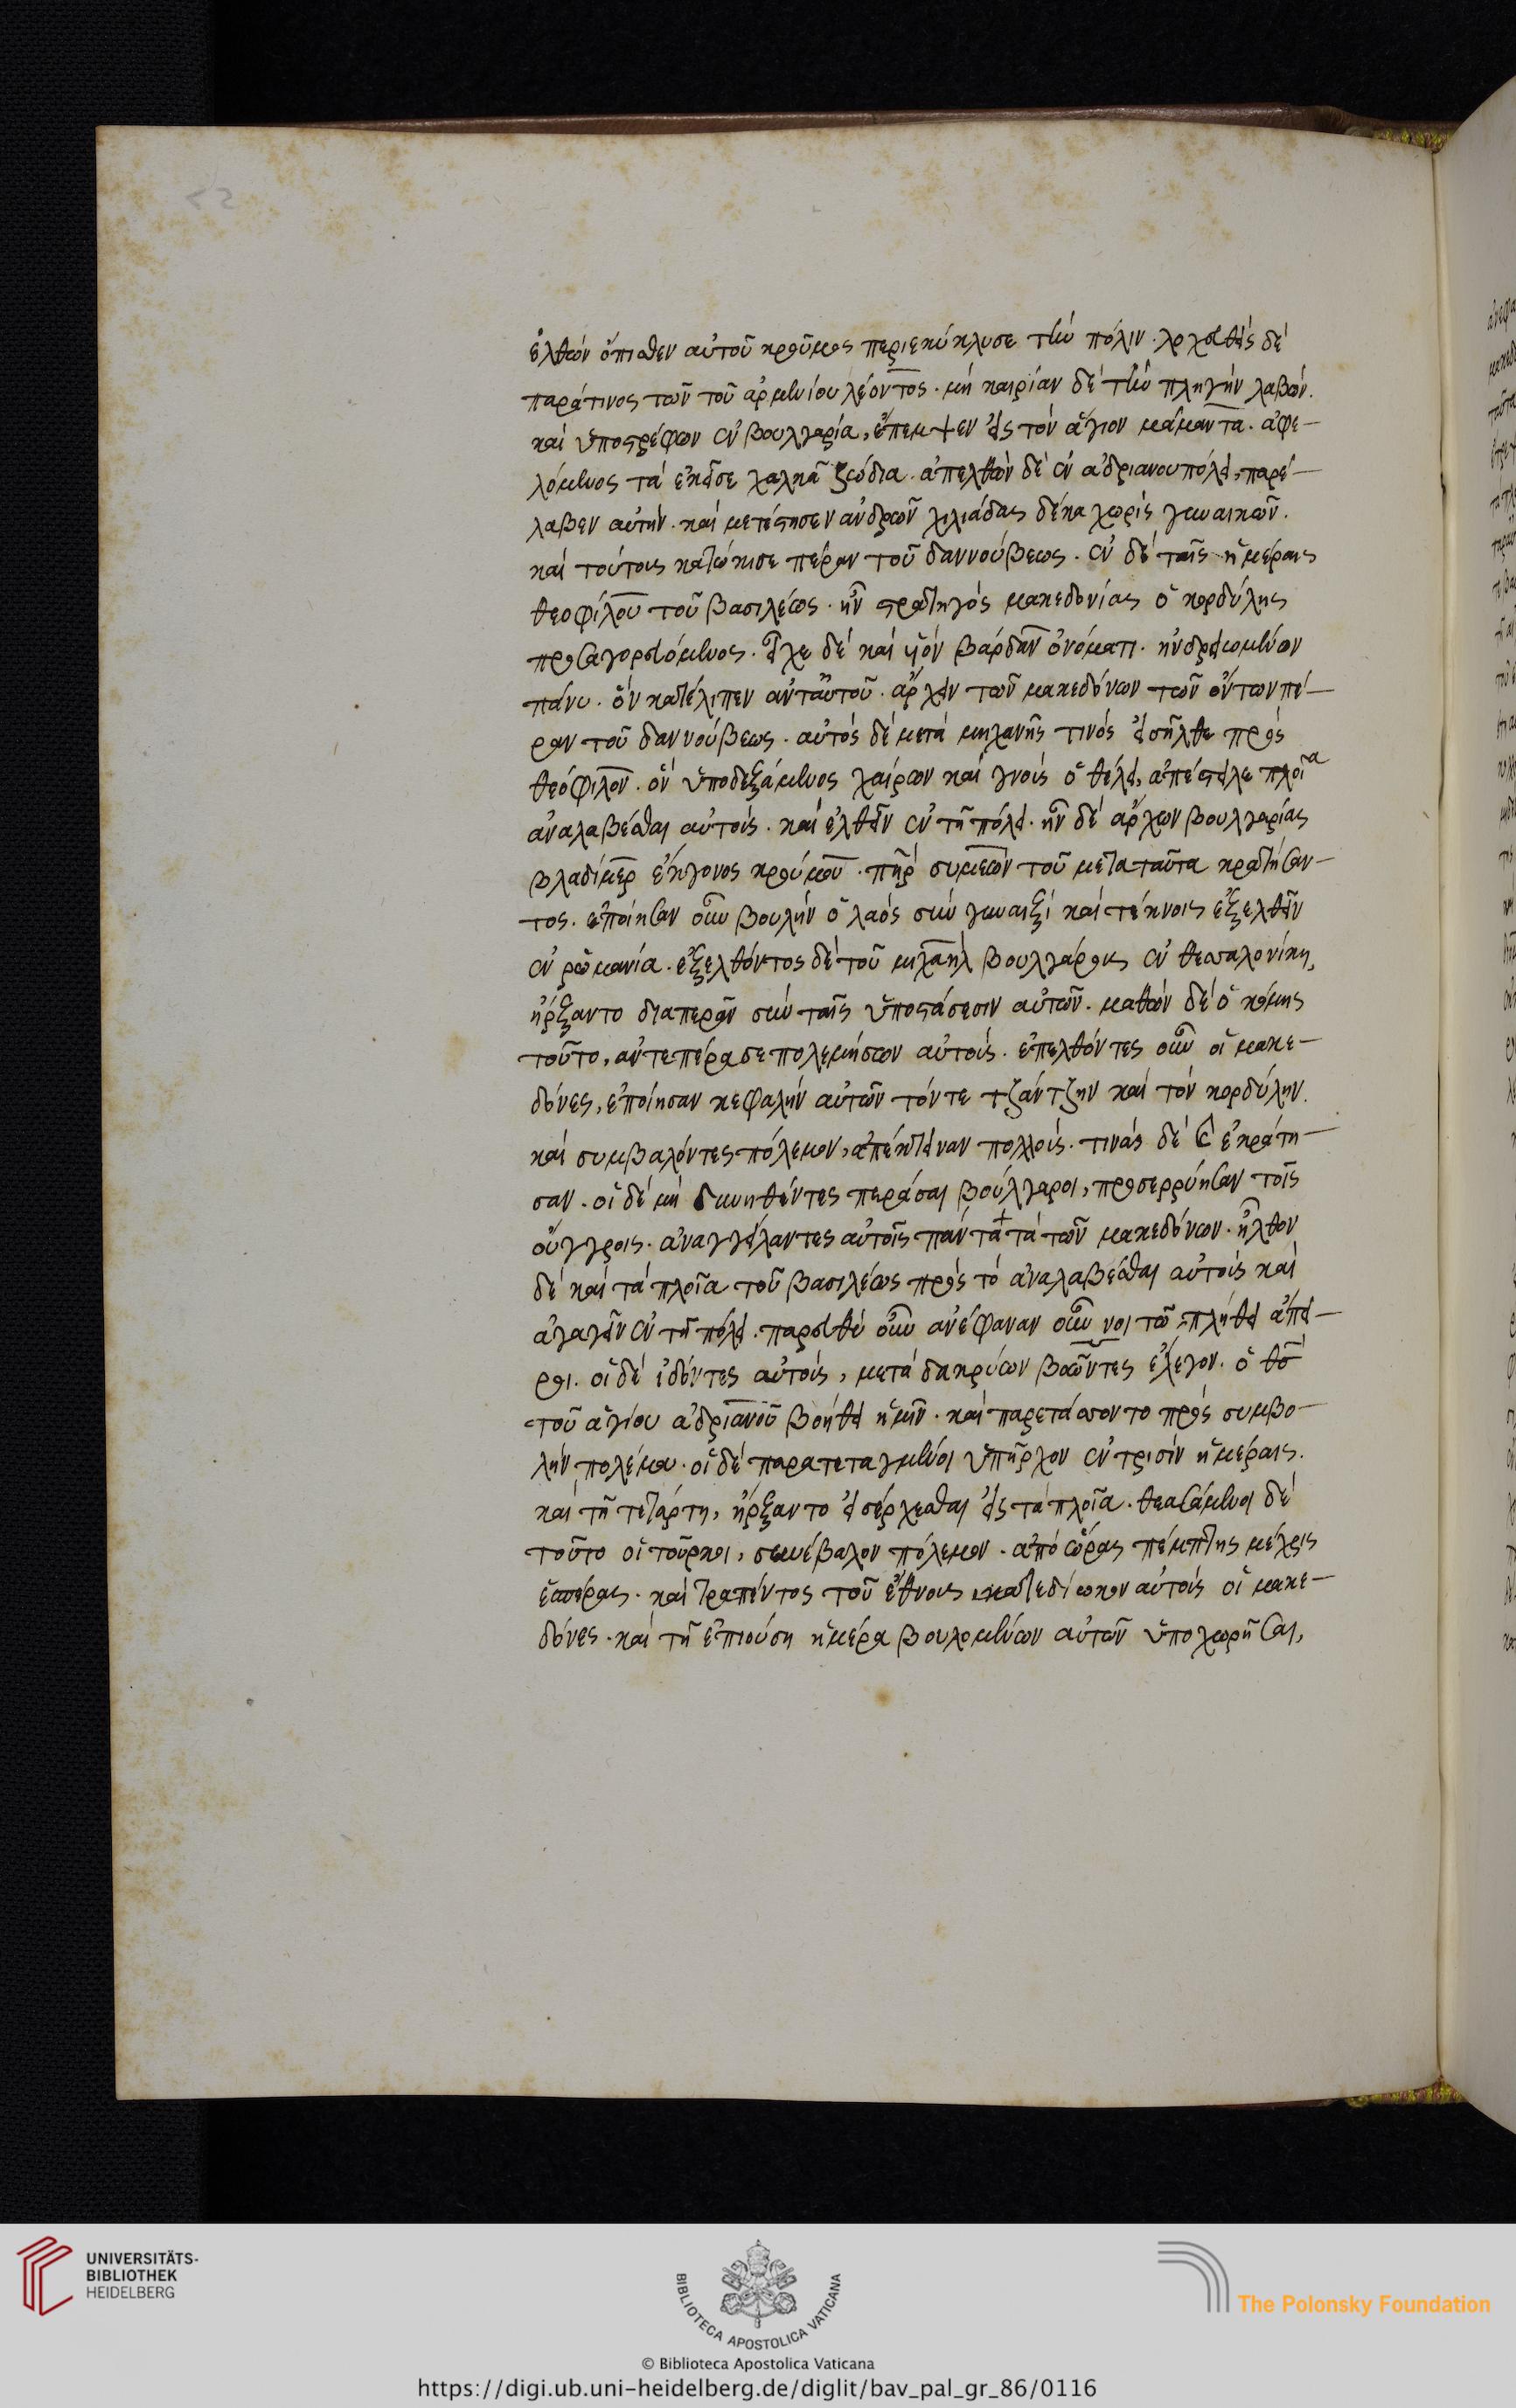 ἐλθὼν ὄπισθεν αὐτοῦ κροῦμος περιεκύκλυσε τὴν πόλιν. λογχευθεὶς δὲ
παρά τινος τῶν τοῦ ἀρμενίου λέοντος. μὴ καιρίαν δὲ τὴν πληγὴν λαβών.
καὶ ὑποστρέφων ἐν βουλγαρία, ἔπεμψεν εἰς τὸν ἅγιον μάμαντα. ἀφε-
λόμενος τὰ ἐκεῖσε χαλκᾶ ζώδια. ἀπελθὼν δὲ ἐν ἀδριανουπόλει, παρέ-
λαβεν αὐτήν. καὶ μετέστησεν ἀνδρῶν χιλιάδας δέκα χωρὶς γυναικῶν.
καὶ τούτους κατώκισε πέραν τοῦ δαννούβεως. ἐν δὲ ταῖς ἡμέραις
θεοφίλου τοῦ βασιλέως. ἦν στρατηγὸς μακεδονίας ὁ κορδύλης
προσαγορευόμενος. εἶχε δὲ καὶ υἱὸν βάρδαν ὀνόματι. ἠνδρειωμένον
πάνυ. ὃν κατέλιπεν ἀνταὐτοῦ. ἄρχειν τῶν μακεδόνων τῶν ὄντων πέ-
ραν τοῦ δαννούβεως. αὐτὸς δὲ μετὰ μηχανῆς τινὸς εἰσῆλθε πρὸς
θεόφιλον. ὃν ὑποδεξάμενος χαίρων καὶ γνοὺς ὃ θέλει, ἀπέστειλε πλοῖα
ἀναλαβέσθαι αὐτούς. καὶ ἐλθεῖν ἐν τῇ πόλει. ἦν δὲ ἄρχων βουλγαρίας
βλαδίμερ ἔκγονος κρούμου. πῆρ συμεὼν τοῦ μεταταῦτα κρατήσαν-
τος. ἐποίησαν οὖν βουλὴν ὁ λαὸς σὺν γυναιξὶ καὶ τέκνοις ἐξελθεῖν
ἐν ῥωμανία. ἐξελθόντος δὲ τοῦ μιχαὴλ βουλγάρους ἐν θεσσαλονίκη,
ἤρξαντο διαπερᾶν σὺν ταῖς ὑποστάσεσιν αὐτῶν. μαθὼν δὲ ὁ κόμης
τοῦτο, ἀντεπέρασε πολεμήσων αὐτούς. ἐπελθόντες οὖν οἱ μακε-
δόνες, ἐποίησαν κεφαλὴν αὐτῶν τόν τε τζάντζην καὶ τὸν κορδύλην.
καὶ συμβαλόντες πόλεμον, ἀπέκτειναν πολλούς. τινὰς δὲ καὶ ἐκράτη-
σαν. οἱ δὲ μὴ δυνηθέντες περάσαι βούλγαροι, προσερρύησαν τοῖς
οὔγγροις. ἀναγγείλαντες αὐτοῖς πάντα τὰ τῶν μακεδόνων. ἦλθον
δὲ καὶ τὰ πλοῖα τοῦ βασιλέως πρὸς τὸ ἀναλαβέσθαι αὐτοὺς καὶ
ἀγαγεῖν ἐν τῇ πόλει. παρευθὺ οὖν ἀνέφαναν οὖννοι τῶ πλήθει ἄπει-
ροι. οἱ δὲ ἰδόντες αὐτούς, μετὰ δακρύων βοῶντες ἔλεγον. ὁ θς
τοῦ ἁγίου ἀδριανοῦ βοήθει ἡμῖν. καὶ παρετάσσοντο πρὸς συμβο-
λὴν πολέμου. οἱ δὲ παρατεταγμένοι ὑπῆρχον ἐν τρισὶν ἡμέραις.
καὶ τῇ τετάρτη, ἤρξαντο εἰσέρχεσθαι εἰς τὰ πλοῖα. θεασάμενοι δὲ
τοῦτο οἱ τοῦρκοι, συνέβαλον πόλεμον. ἀπὸ ὥρας πέμπτης μέχρις
ἑσπέρας. καὶ τραπέντος τοῦ ἔθνους κατεδίωκον αὐτοὺς οἱ μακε-
δόνες. καὶ τῇ ἐπιούση ἡμέρα βουλομένων αὐτῶν ὑποχωρῆσαι,
UNIVERSITÄTS-
BIBLIOTHEK
HEIDELBERG
BIBLIOTECA APOSTOLICA VATICANA
The Polonsky Foundation
© Biblioteca Apostolica Vaticana
https://digi.ub.uni-heidelberg.de/diglit/bav_pal_gr_86/0116